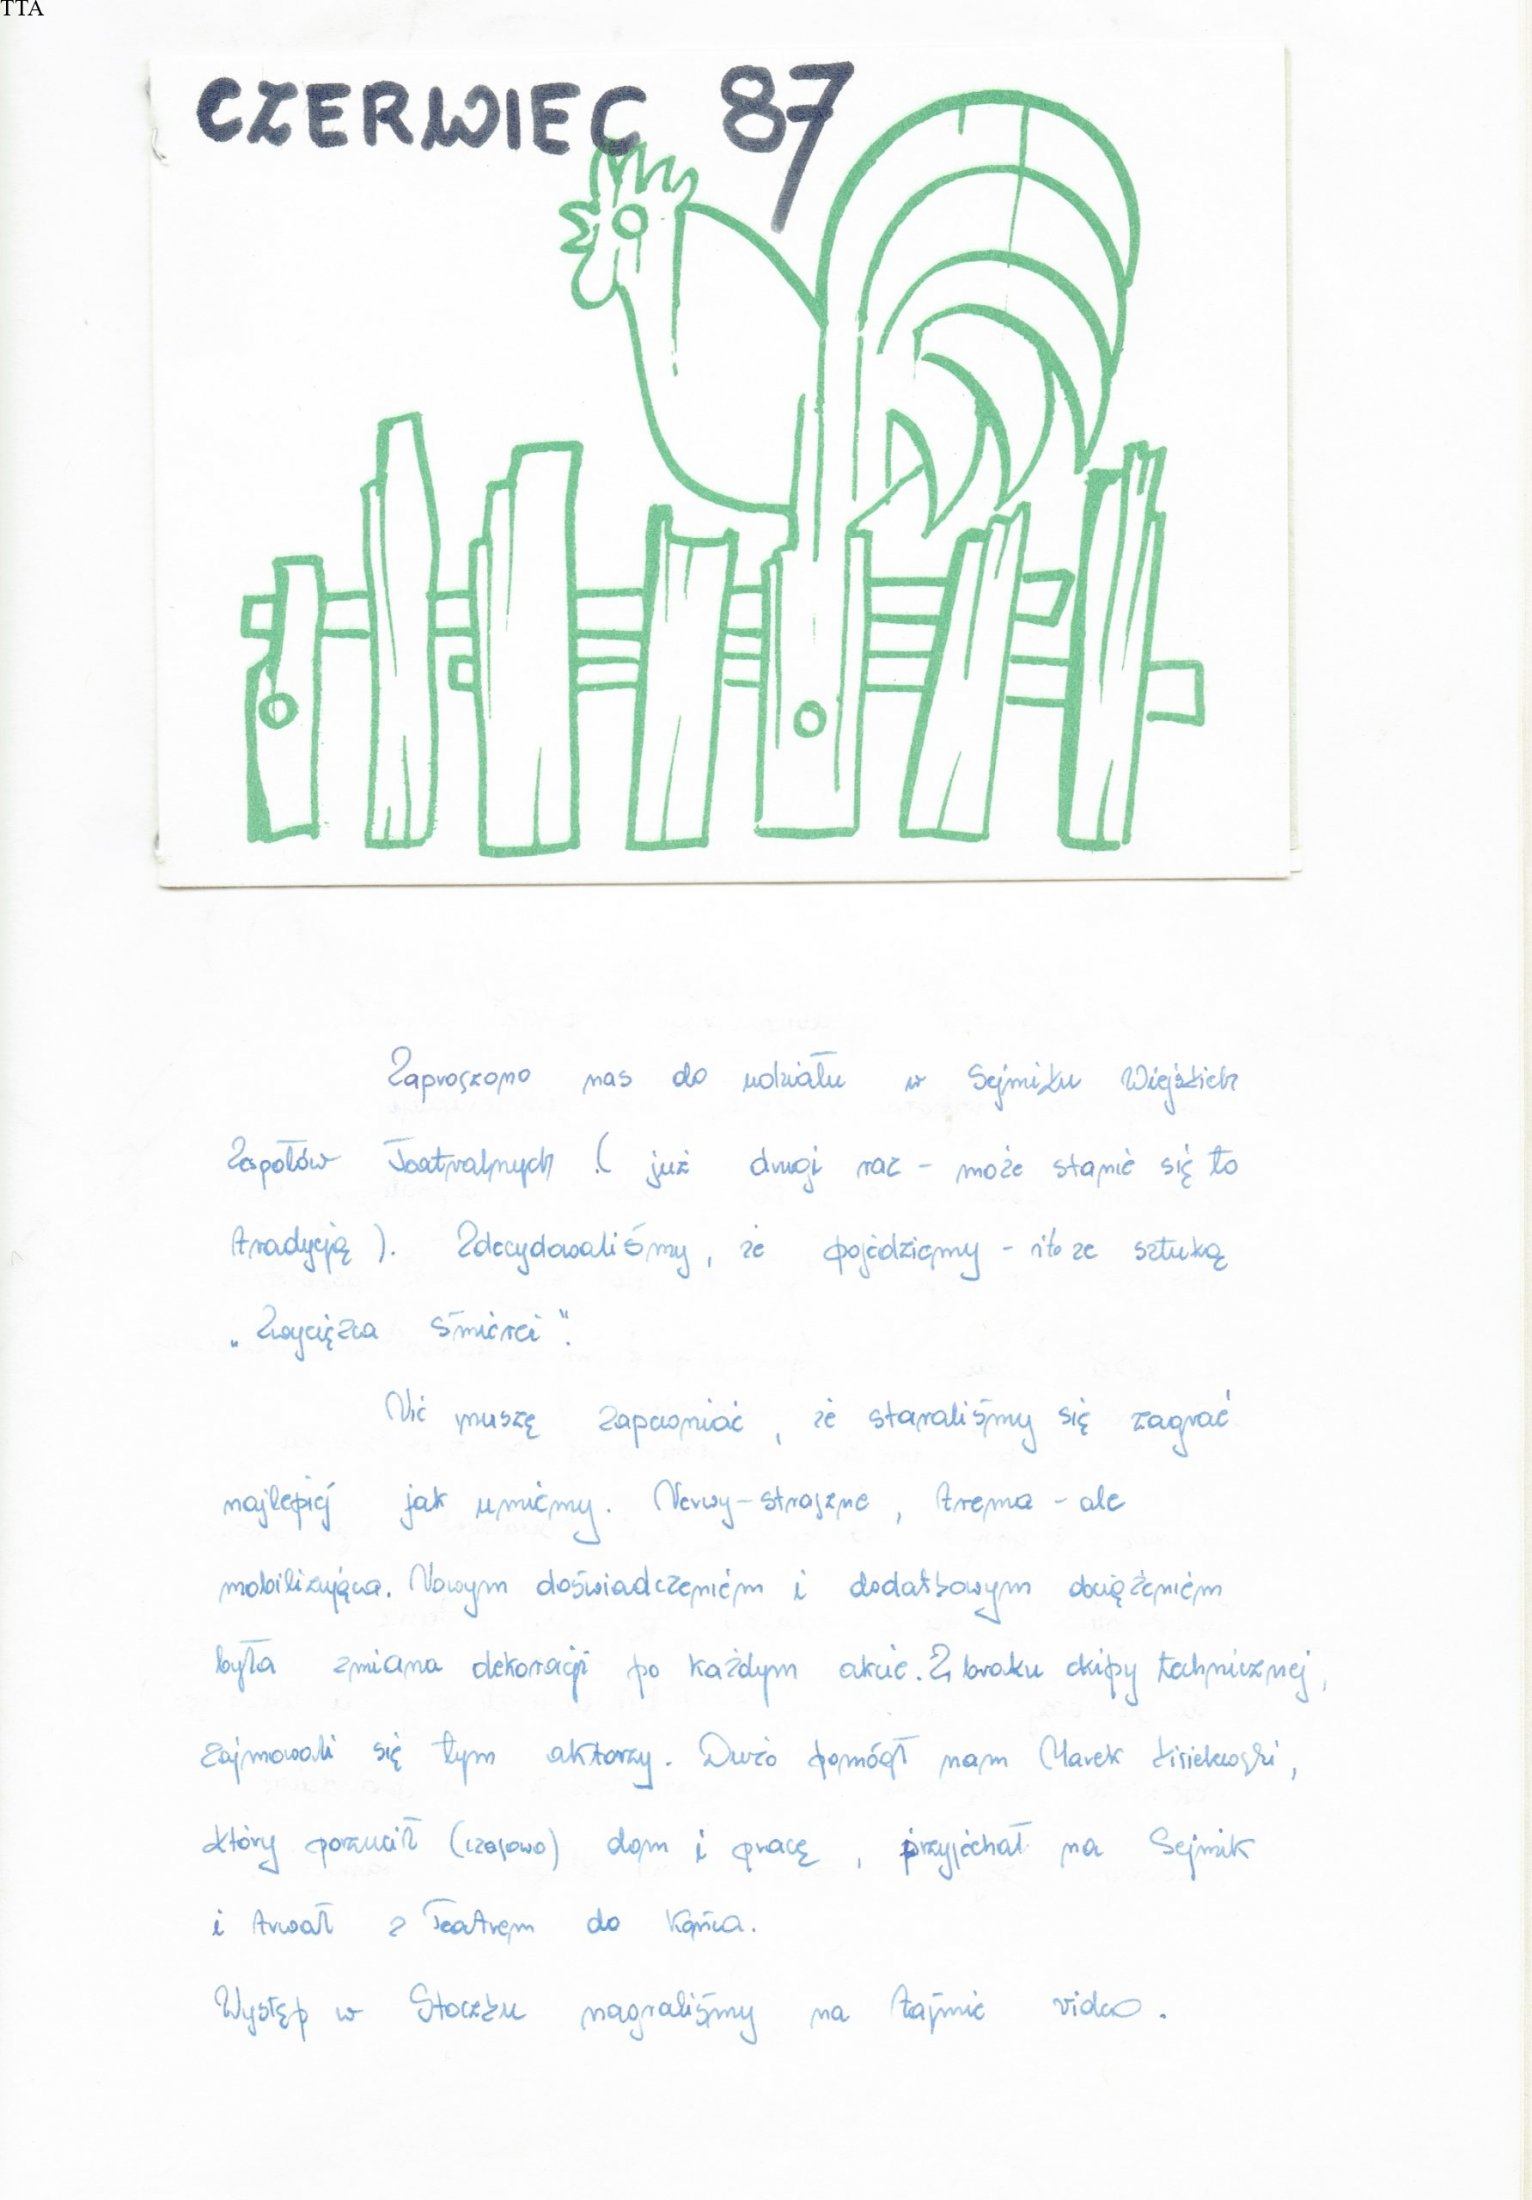 TTA
CZERWIEC 87
Zaproszono nas do udziału w Sejmiku Wiejskich
Zespołów Teatralnych ( już drugi raz - może stanie się to
tradycją ). Zdecydowaliśmy, że pojedziemy - ze sztuką
„ Zwycięzca śmierci ".
Nie muszę zapewniać, że staraliśmy się zagrać
najlepiej jak umiemy. Nerwy - straszne, trema - ale
mobilizująca. Nowym doświadczeniem i dodatkowym obciążeniem
była zmiana dekoracji po każdym akcie. Z braku ekipy technicznej,
zajmowali się tym aktorzy. Dużo pomógł nam Marek
który porzucił (czasowo) dom i pracę, przyjechał na Sejmik
i trwał z Teatrem do końca.
Występ w Stoczku nagraliśmy na taśmie video.